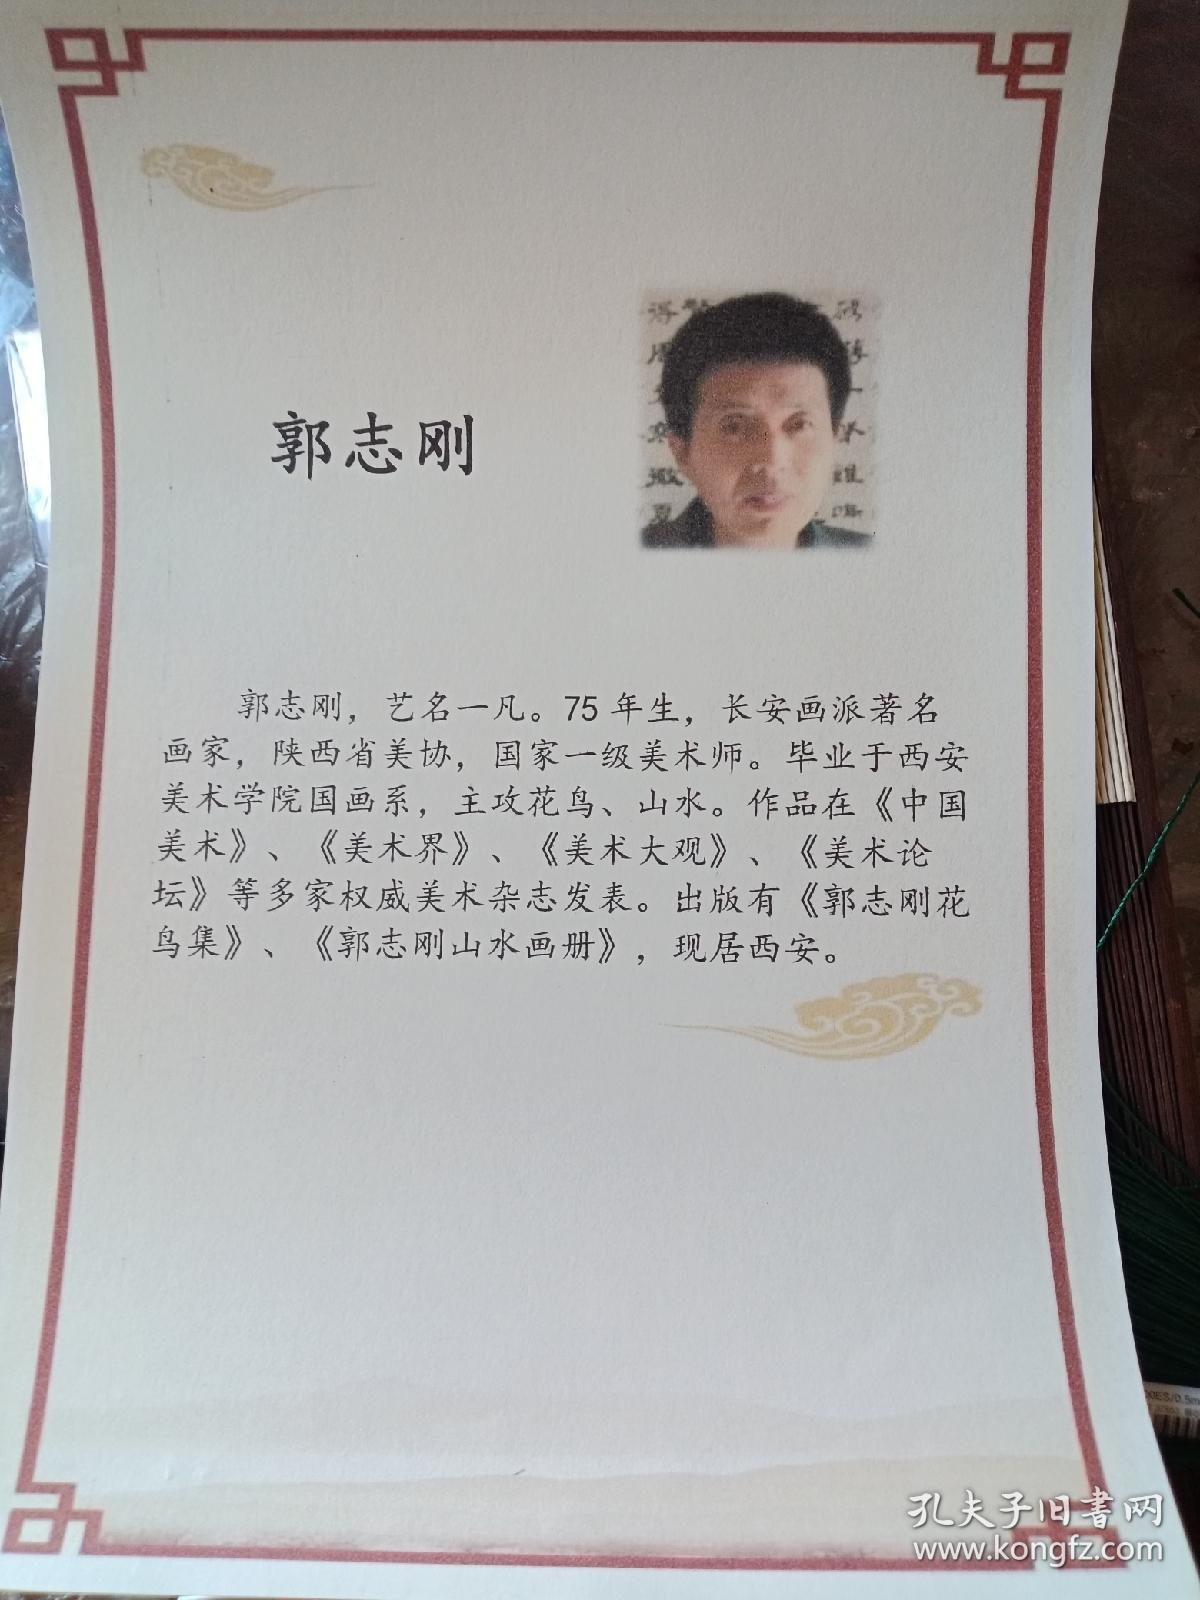 郭志刚
郭志刚，艺名一凡。75年生，长安画派著名
画家，陕西省美协，国家一级美术师。毕业于西安
美术学院国画系，主攻花鸟、山水。作品在《中国
美术》、《美术界》、《美术大观》、《美术论
坛》等多家权威美术杂志发表。出版有《郭志刚花
鸟集》、《郭志刚山水画册》，现居西安。
孔夫子旧书网
www.kongfz.com